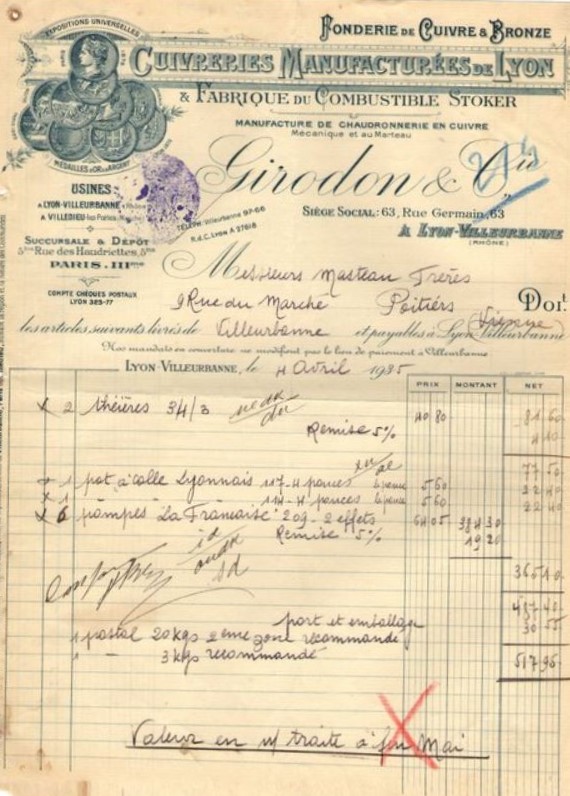 EXPOSITIONS UNIVERSELLES
FONDERIE DE CUIVRE & BRONZE
CUIVRERIES MANUFACTURÉES DE LYON
& FABRIQUE DU COMBUSTIBLE STOKER
MANUFACTURE DE CHAUDRONNERIE EN CUIVRE
Mécanique et au Marteau
MÉDAILLES D'OR & D'ARGENT
Girodon & Cie
USINES
A LYON-VILLEURBANNE (Rhône)
A VILLEDIEU-les-Poêles (Manche)
TÉLÉPH: Villeurbanne 97-66
R.d.C. Lyon A 27618
SIÈGE SOCIAL: 63, Rue Germain, 63
A LYON-VILLEURBANNE
(RHÔNE)
SUCCURSALE & DÉPÔT
5bis Rue des Haudriettes, 5bis
PARIS. IIIme
COMPTE CHÈQUES POSTAUX
LYON 325-77
Messieurs Masteau Frères
9 Rue du Marché Poitiers Doit
(Vienne)
les articles suivants livrés de Villeurbanne et payables à Lyon-Villeurbanne
Nos mandats en couverture ne modifient pas le lieu de paiement à Villeurbanne
LYON-VILLEURBANNE, le 4 Avril 1935
PRIX MONTANT NET
x 2 théières 34/3 40 80 81 60
Remise 5% 4 10
77 50
x 1 pot à colle Lyonnais 117-4 pouces le pouce 5 60 22 40
x 1 114-4 pouces le pouce 5 60 22 40
x 6 pompes "La Française" 209-2 effets 64 05 384 30
Remise 5% 19 20
365 10
487 40
port et emballage 30 55
1 postal 20kgs 2ème zone recommandé
1 — 3kgs recommandé
517 95
Valeur en n/ traite à fin Mai